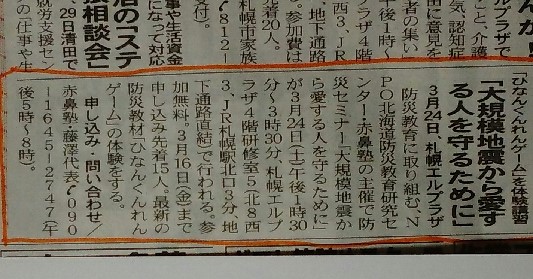 「ひなんくんれんゲーム」を体験講習
「大規模地震から愛す
る人を守るために」
3月24日、札幌エルプラザ
防災教育に取り組む、N
PO北海道防災教育研究セ
ンター・赤鼻塾の主催で防
災セミナー「大規模地震か
ら愛する人を守るために」
が3月24日(土)午後1時30
分〜3時30分、札幌エルプ
ラザ4階研修室5(北8西
3、JR札幌駅北口3分、地
下通路直結)で行われる。参
加無料。3月16日(金)まで
申し込み先着15人。最新の
防災教材「ひなんくんれん
ゲーム」の体験をする。
申し込み・問い合わせ/
赤鼻塾・藤澤代表☎090
-1645-2747(午
後5時〜8時)。
ルプラザで
こと、介護
気、認知症
者の集い
午後1時〜
ラザ4階
西3、JR
地下通路
着20人。
参加費は
札幌市家族
☎812-
受付。
事や生活資金
になって対応
活の「ステ
談相談会」
29日清田で
就労支援セン
の「仕事や生